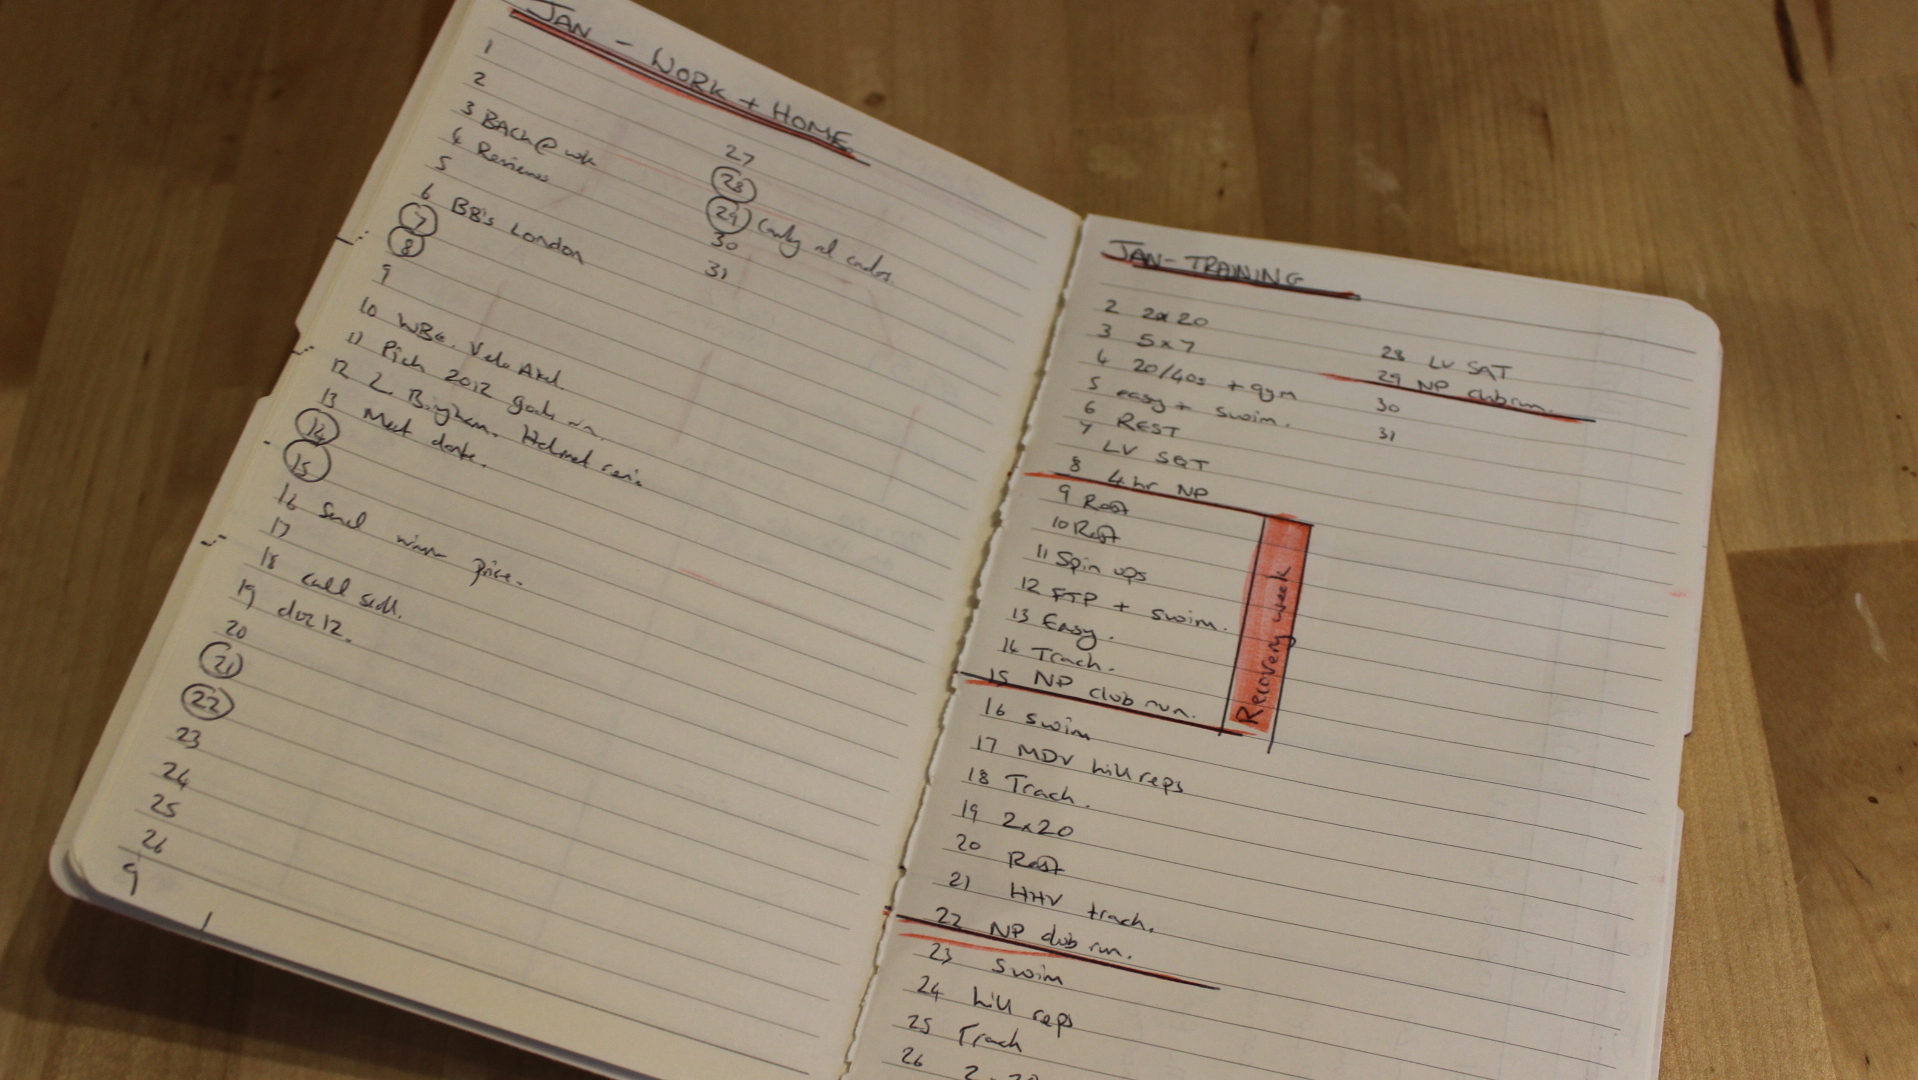 JAN - WORK + HOME
1
2
3 BACK @ wk
4 Reviews
5
6 BB's London
7
8
9
10 WBe. Velo Axel
11 Pick 2012 goals
12 L. Bingham. Helmet
13 Meet dante.
14
15
16 Send winner prize.
17
18 call
19 doz 12.
20
21
22
23
24
25
26
9
27
28
29
30
31
JAN - TRAINING
2 2x20
3 5x7
4 20/40s + gym
5 easy + swim.
6 REST
7 LV SQT
8 4hr NP
9 Rest
10 Rest
11 Spin ups
12 FTP + swim.
13 Easy.
14 Track.
15 NP club run.
Recovery week
16 swim
17 MDV hill reps
18 Track.
19 2x20
20 Rest
21 HHV track.
22 NP club run.
23 Swim
24 hill reps
25 Track
26
28 LV SAT
29 NP club run.
30
31